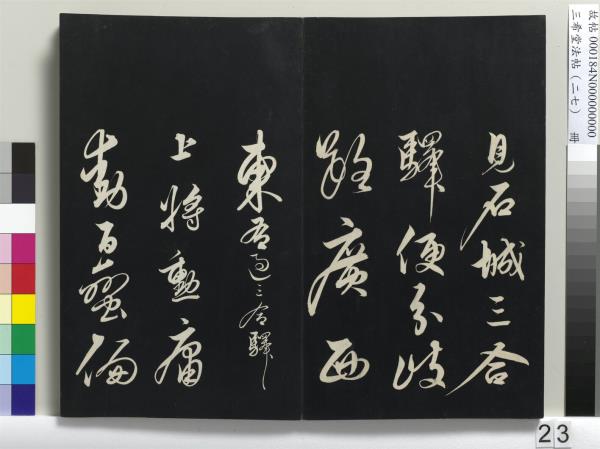 見石城三合
驛便分岐
路廣西
東右過三合驛
上將勳庸
動百蠻偏
故帖 000184N000000000
三希堂法帖（二七） 冊
23